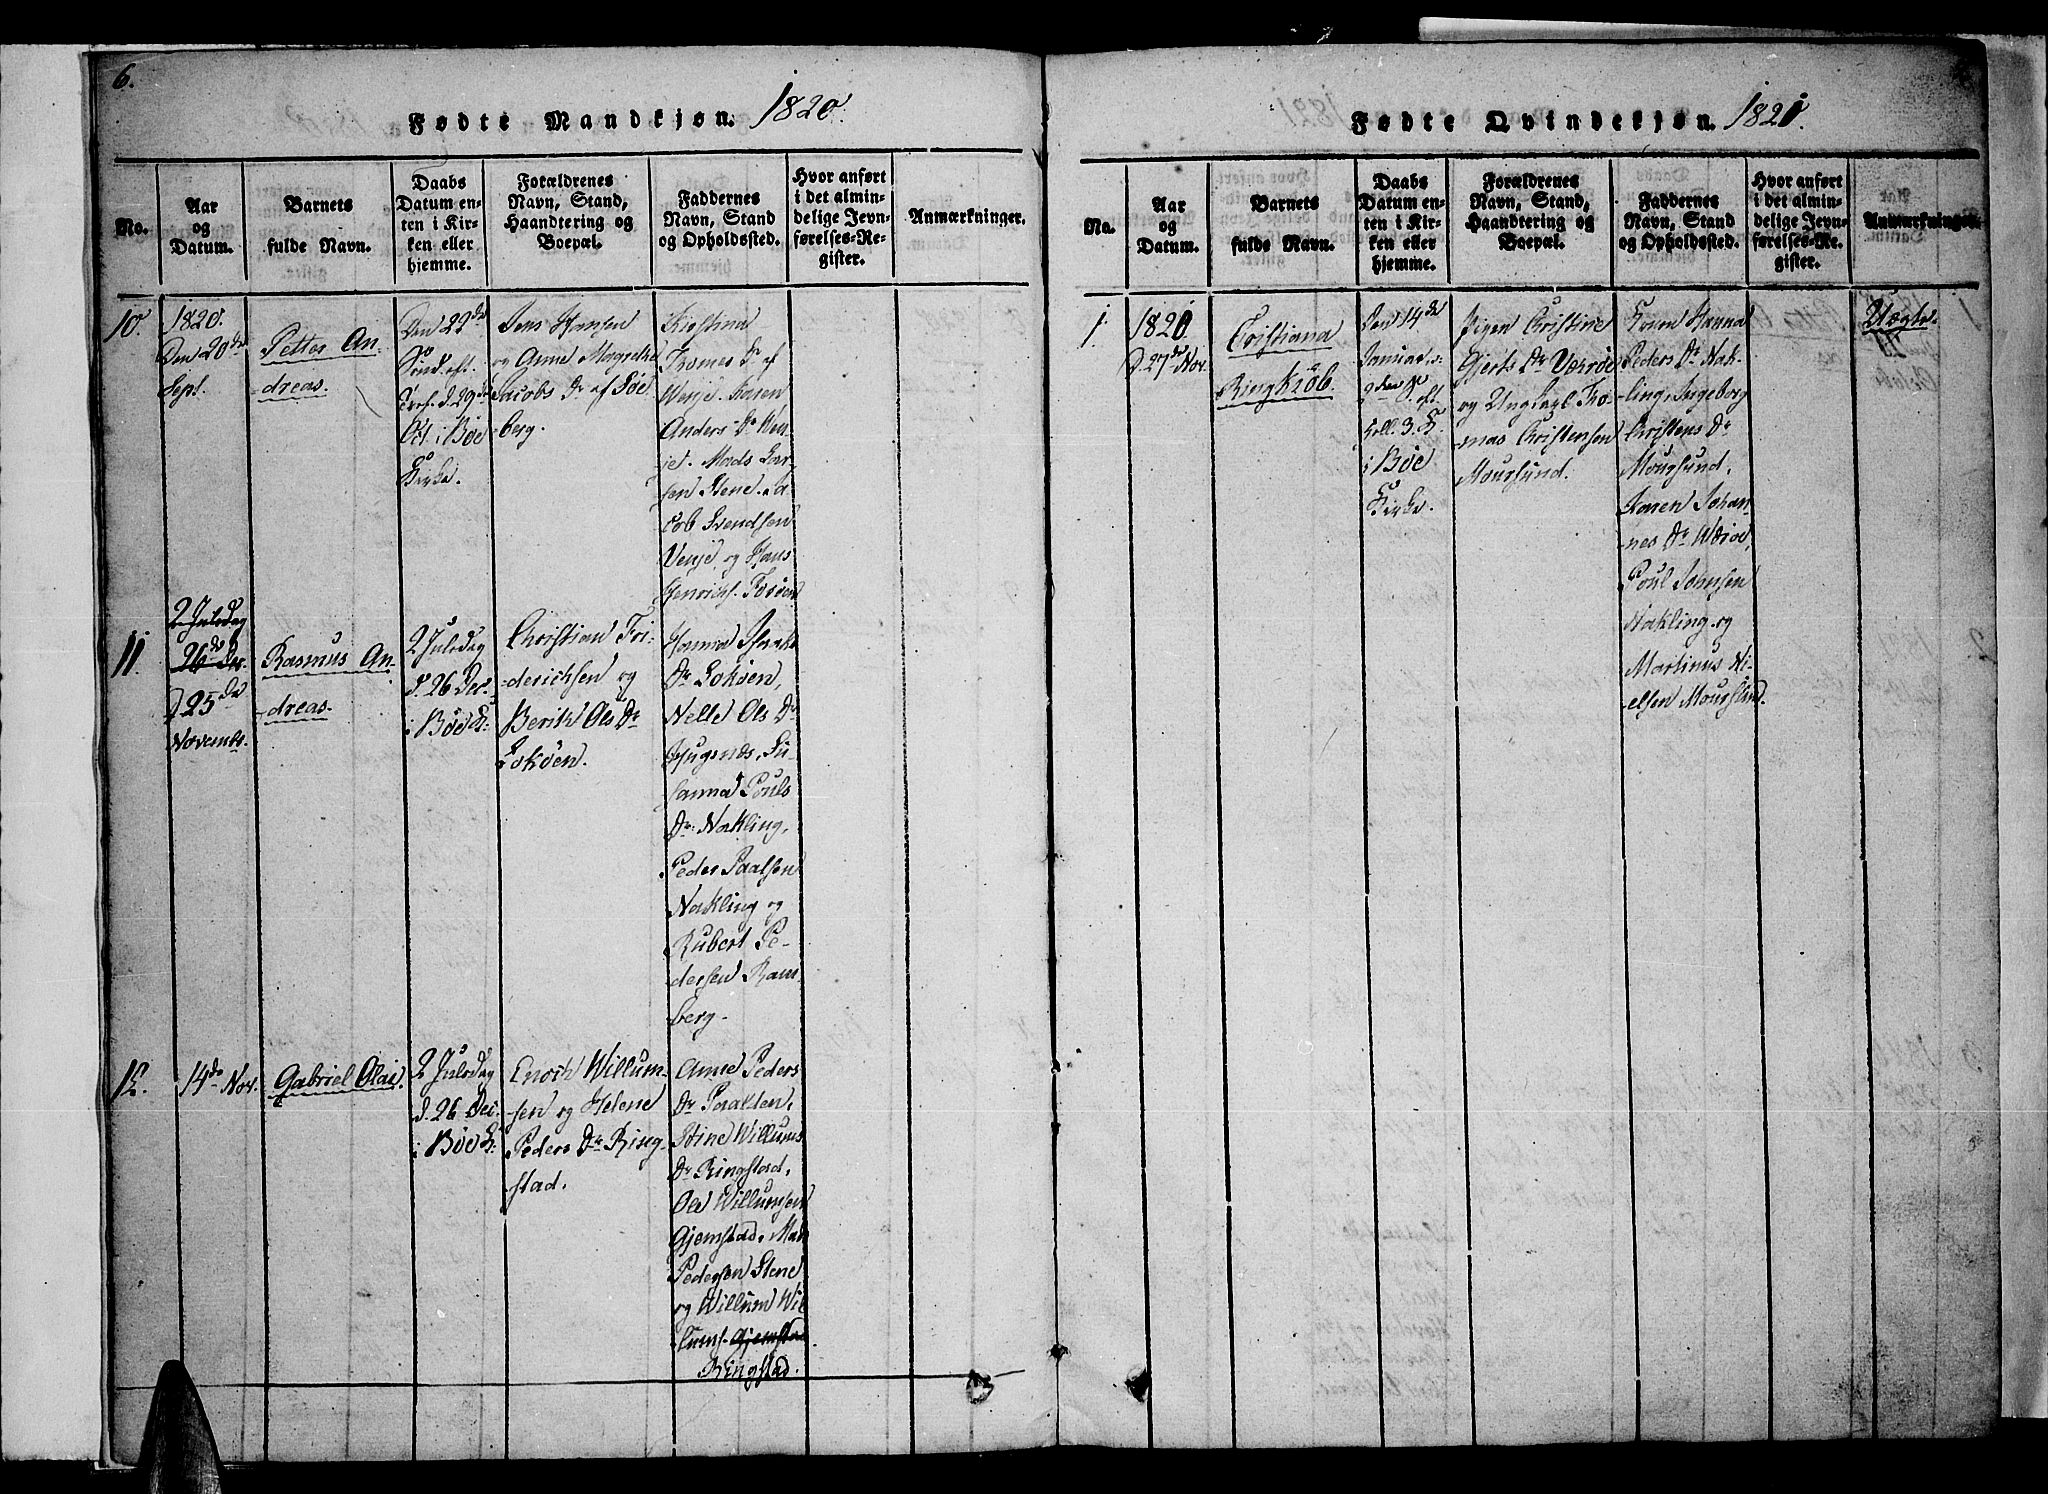 6.
Fødte Mandkjøn. 1820.
No.
Aar
og
Datum.
Barnets
fulde Navn.
Daabs
Datum en-
ten i Kir-
ken eller
hjemme.
Forældrenes
Navn, Stand,
Haandtering og
Boepæl.
Faddernes
Navn, Stand
og Opholdssted.
Hvor anført
i det almin-
delige Jevn-
førelses-Re-
gister.
Anmærkninger.
10.
1820.
Den 20de
Sept.
Petter An-
dreas.
Den 22de
Sønd. eft.
Tref. d. 29de
Oct. i Bøe
Kirke.
Jens Hansen
og Anne Margrethe
Jacobs Dr af Søe
berg.
Kirstina
Tromes Dr af
Venje. Karen
Anders Dr Ven-
je. Mads Lar-
sen Stene. Ja-
cob Svendsen
Venje og Hans
Henrichs.
11.
2 Juledag
26de Dec.
d 25de
Novembr.
Rasmus An-
dreas.
2 Juledag
d. 26 Dec.
i Bøe K:
Christian Fri-
derichsen og
Berith Ols Dr
Lokøen.
Hanna Isaaks
Dr Lokøen,
Nelle Ols Dr
Hugsnæs, Su-
sanna Pouls
Dr. Nakling,
Peder Paalsen
Nakling og
Rubert Pe-
dersen Rams-
berg.
12.
14de Nov.
Gabriel Olai.
2 Juledag
d. 26 Dec.
i Bøe K:
Enoch Willum-
sen og Helene
Peders Dr Ring-
stad.
Anne Peders
Dr
Stine Willums
Dr Ringstad,
Ole Willumsen
Gjemstad, Mads
Pedersen Stene
og Willum Wil-
lums. Gjemstad
Ringstad.
Fødte Qvindekjøn. 1821.
No.
Aar
og
Datum.
Barnets
fulde Navn.
Daabs
Datum en-
ten i Kir-
ken eller
hjemme.
Forældrenes
Navn, Stand,
Haandtering og
Boepæl.
Faddernes
Navn, Stand
og Opholdssted.
Hvor anført
i det almin-
delige Jevn-
førelses-Re-
gister.
Anmærkninger.
1.
1820.
d. 27de Nov.
Cristiana
Ringkiöb.
Den 14de
Januar
S. eft.
Hell. 3. K.
i Bøe
Kirke.
Pigen Christine
Gjerts Dr Værøe
og Ungkarl Tho-
mas Christensen
Moursund.
Konen Hanna
Peders Dr Nak-
ling, Ingeborg
Christens Dr
Moursund,
Konen Johan-
nes Dr Wærøe,
Poul Johnsen
Nakling og
Martinus Ni-
elsen Moursund.
Uægte.